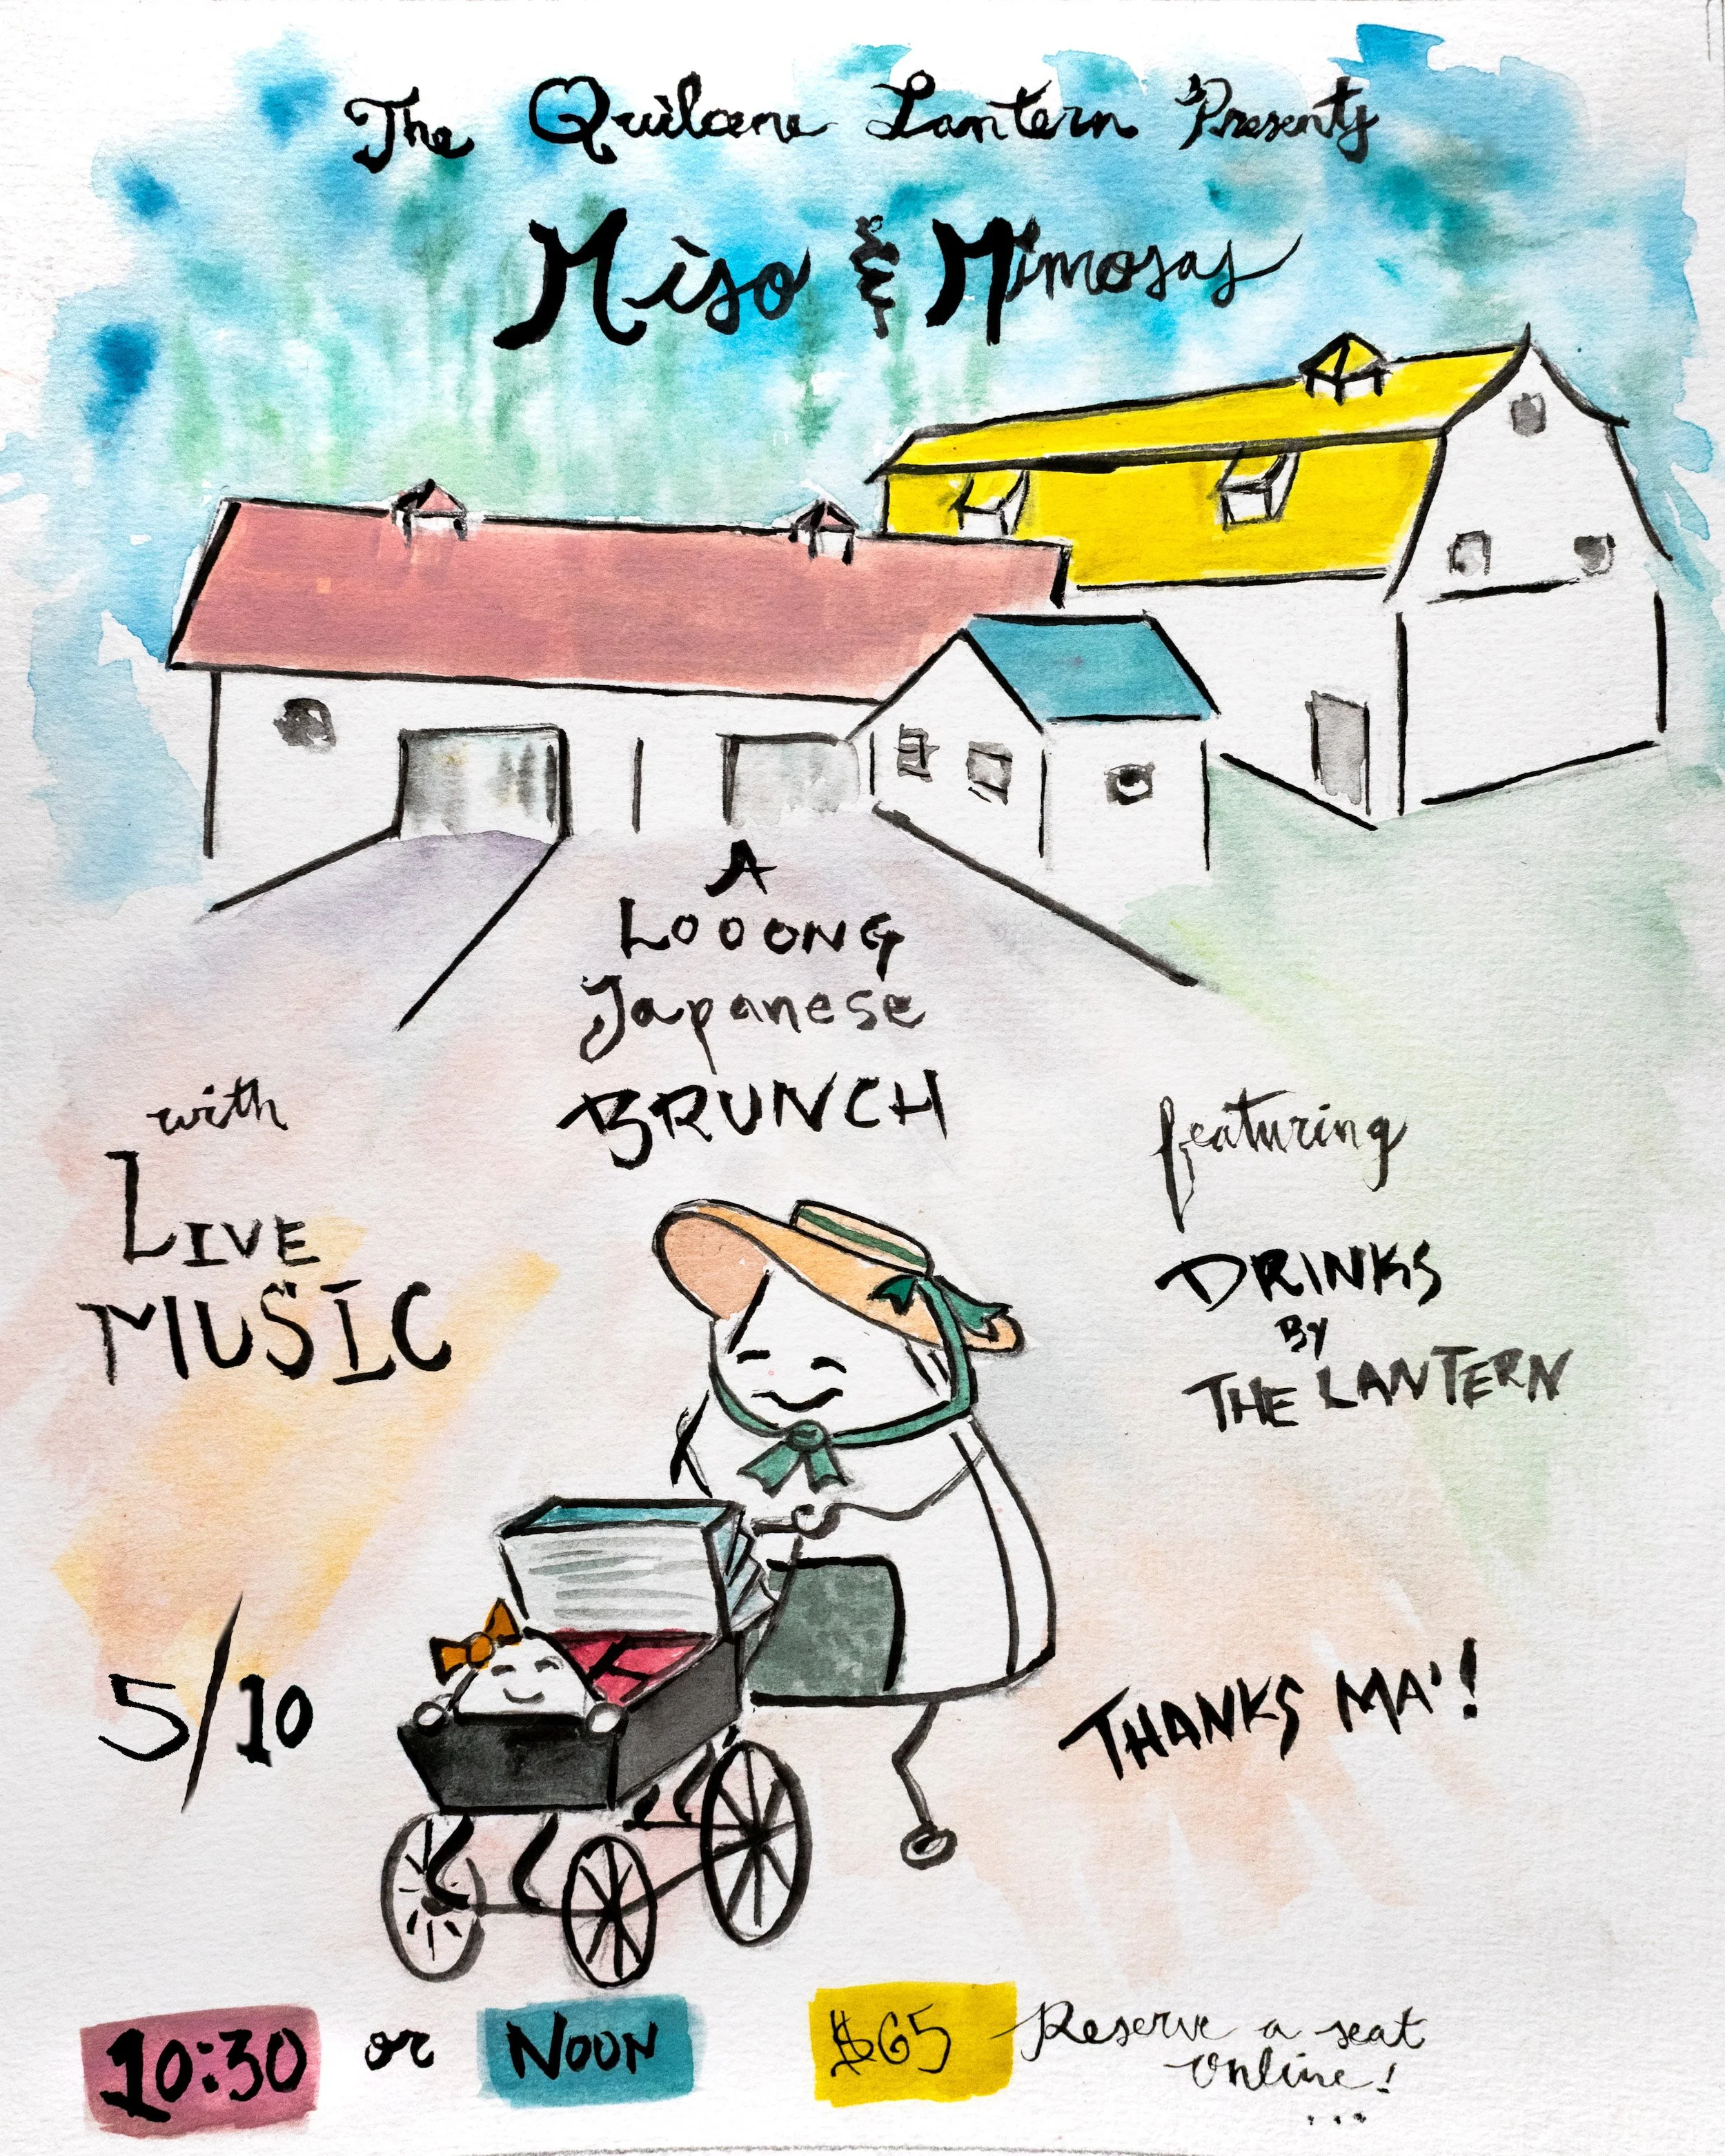 The Quilcene Lantern Presents
Miso & Mimosas
A
LOOONG
Japanese
BRUNCH
with
LIVE
MUSIC
featuring
DRINKS
BY
THE LANTERN
5/10
THANKS MA'!
10:30 or NOON $65 Reserve a seat
online!
...